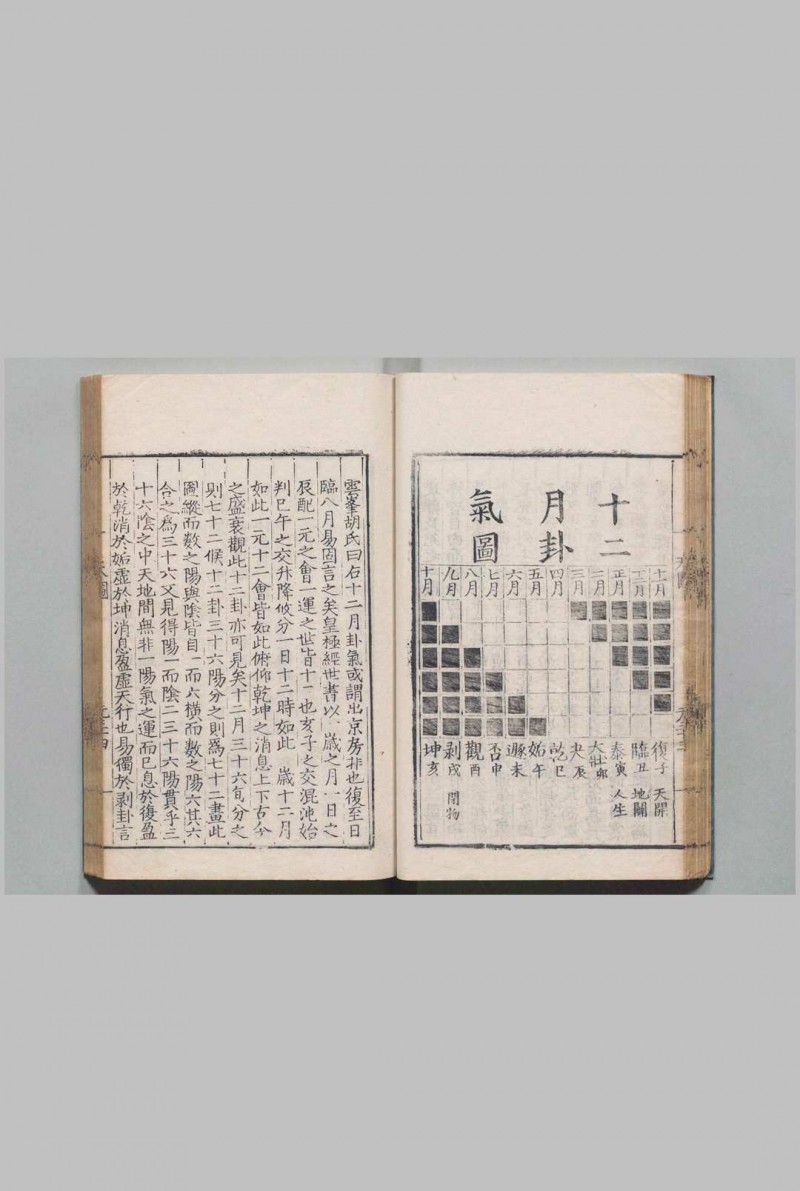 十二
月卦
氣圖
十一月
十二月
正月
二月
三月
四月
五月
六月
七月
八月
九月
十月
復子 天開
臨丑 地闢
泰寅 人生
大壯卯
夬辰
乾巳
姤午
遯未
否申
觀酉
剥戌 閉物
坤亥
雲峯胡氏曰右十二月卦氣或謂出京房非也復至日
臨八月易固言之矣皇極經世書以一歲之月一日之
辰配一元之會一運之世皆十二也亥子之交混沌始
判巳午之交升降攸分一日十二時如此一歲十二月
如此一元十二會皆如此俯仰乾坤之消息上下古今
之盛衰觀此十二卦亦可見矣十二月三十六旬分之
則七十二候十二卦三十六陽分之則爲七十二畫此
圖縱而數之陽與陰皆自一而六橫而數之陽六其六
合之爲三十六又見得陽一而陰二三十六陽貫乎三
十六陰之中天地間無非一陽氣之運而已息於復盈
於乾消於姤虚於坤消息盈虚天行也易獨於剥卦言